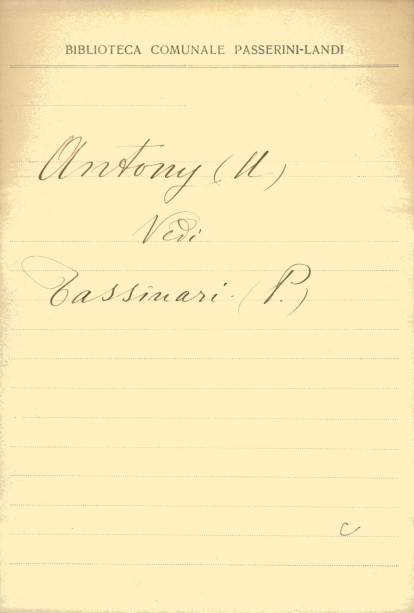 BIBLIOTECA COMUNALE PASSERINI-LANDI
Antony (U)
Vedi
Tassinari. (P.)
c